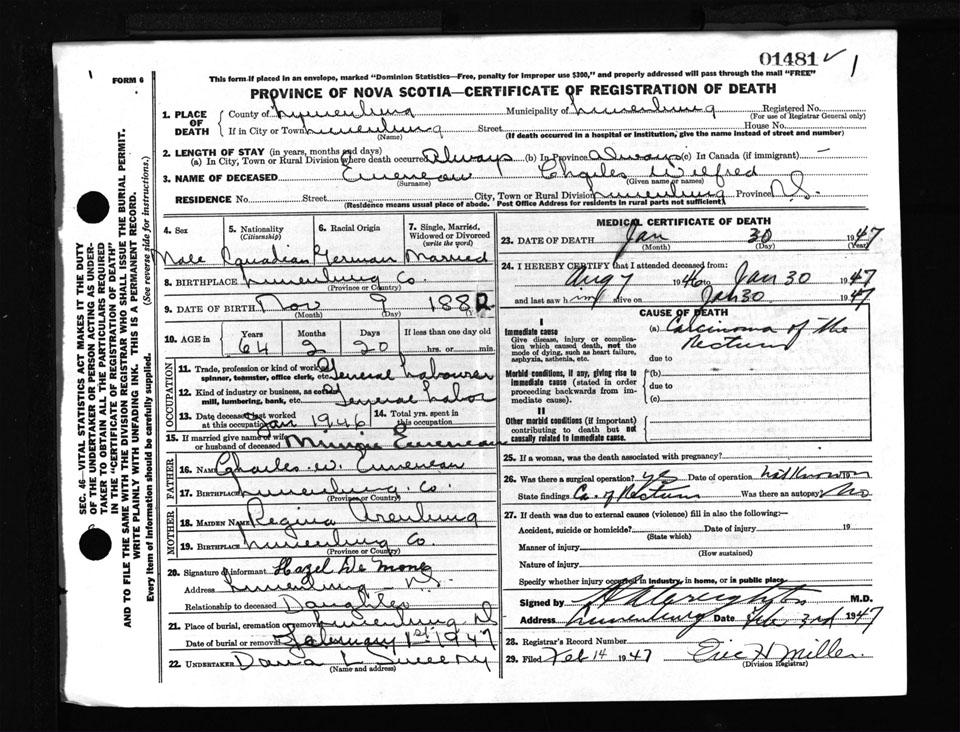 01481 ✓ 1
FORM 6
This form if placed in an envelope, marked "Dominion Statistics—Free, penalty for improper use $300," and properly addressed will pass through the mail "FREE"
PROVINCE OF NOVA SCOTIA—CERTIFICATE OF REGISTRATION OF DEATH
1. PLACE OF DEATH County of Lunenburg Municipality of Lunenburg Registered No.
(For use of Registrar General only)
If in City or Town Lunenburg Street House No.
(Name) (If death occurred in a hospital or institution, give the name instead of street and number)
2. LENGTH OF STAY (in years, months and days)
(a) In City, Town or Rural Division where death occurred Always (b) In Province Always (c) In Canada (if immigrant) —
3. NAME OF DECEASED Eueneau Charles Wilfred
(Surname) (Given name or names)
RESIDENCE No. Street City, Town or Rural Division Lunenburg Province N.S.
(Residence means usual place of abode. Post Office Address for residents in rural parts not sufficient)
4. Sex 5. Nationality (Citizenship) 6. Racial Origin 7. Single, Married, Widowed or Divorced (write the word)
Male Canadian German Married
8. BIRTHPLACE Lunenburg Co.
(Province or Country)
9. DATE OF BIRTH Nov 9 1882
(Month) (Day)
10. AGE in Years Months Days If less than one day old
64 2 20 hrs. or min.
OCCUPATION
11. Trade, profession or kind of work as spinner, teamster, office clerk, etc. General Labourer
12. Kind of industry or business, as cotton mill, lumbering, bank, etc. General Labor
13. Date deceased last worked at this occupation Jan 1946 14. Total yrs. spent in this occupation
15. If married give name of wife or husband of deceased Minnie Eueneau
FATHER
16. Name Charles W. Eueneau
17. Birthplace Lunenburg Co.
(Province or Country)
MOTHER
18. Maiden Name Regina Arenburg
19. Birthplace Lunenburg Co.
(Province or Country)
20. Signature of informant Hazel De Mone
Address Lunenburg N.S.
Relationship to deceased Daughter
21. Place of burial, cremation or removal Lunenburg N.S
Date of burial or removal February 1st 1947
22. UNDERTAKER Dana L Sweeny
(Name and address)
MEDICAL CERTIFICATE OF DEATH
23. DATE OF DEATH Jan 30 1947
(Month) (Day) (Year)
24. I HEREBY CERTIFY that I attended deceased from:
Aug 7 1946 to Jan 30 1947
and last saw him alive on Jan 30 1947
CAUSE OF DEATH
I
Immediate cause (a) Carcinoma of the Rectum
Give disease, injury or complication which caused death, not the mode of dying, such as heart failure, asphyxia, asthenia, etc.
due to
Morbid conditions, if any, giving rise to immediate cause (stated in order proceeding backwards from immediate cause). (b)
due to
(c)
II
Other morbid conditions (if important) contributing to death but not causally related to immediate cause.
25. If a woman, was the death associated with pregnancy?
26. Was there a surgical operation? yes Date of operation not known 19
State findings Ca. of Rectum Was there an autopsy? No
27. If death was due to external causes (violence) fill in also the following:—
Accident, suicide or homicide? Date of injury 19
(State which)
Manner of injury
(How sustained)
Nature of injury
Specify whether injury occurred in industry, in home, or in public place
Signed by M.D.
Address Lunenburg Date Feb 3rd 1947
28. Registrar's Record Number
29. Filed Feb 14 1947 Eric H Miller
(Division Registrar)
SEC. 46—VITAL STATISTICS ACT MAKES IT THE DUTY
OF THE UNDERTAKER OR PERSON ACTING AS UNDER-
TAKER TO OBTAIN ALL THE PARTICULARS REQUIRED
IN THE "CERTIFICATE OF REGISTRATION OF DEATH"
AND TO FILE THE SAME WITH THE DIVISION REGISTRAR WHO SHALL ISSUE THE BURIAL PERMIT.
WRITE PLAINLY WITH UNFADING INK. THIS IS A PERMANENT RECORD.
Every item of information should be carefully supplied. (See reverse side for instructions.)